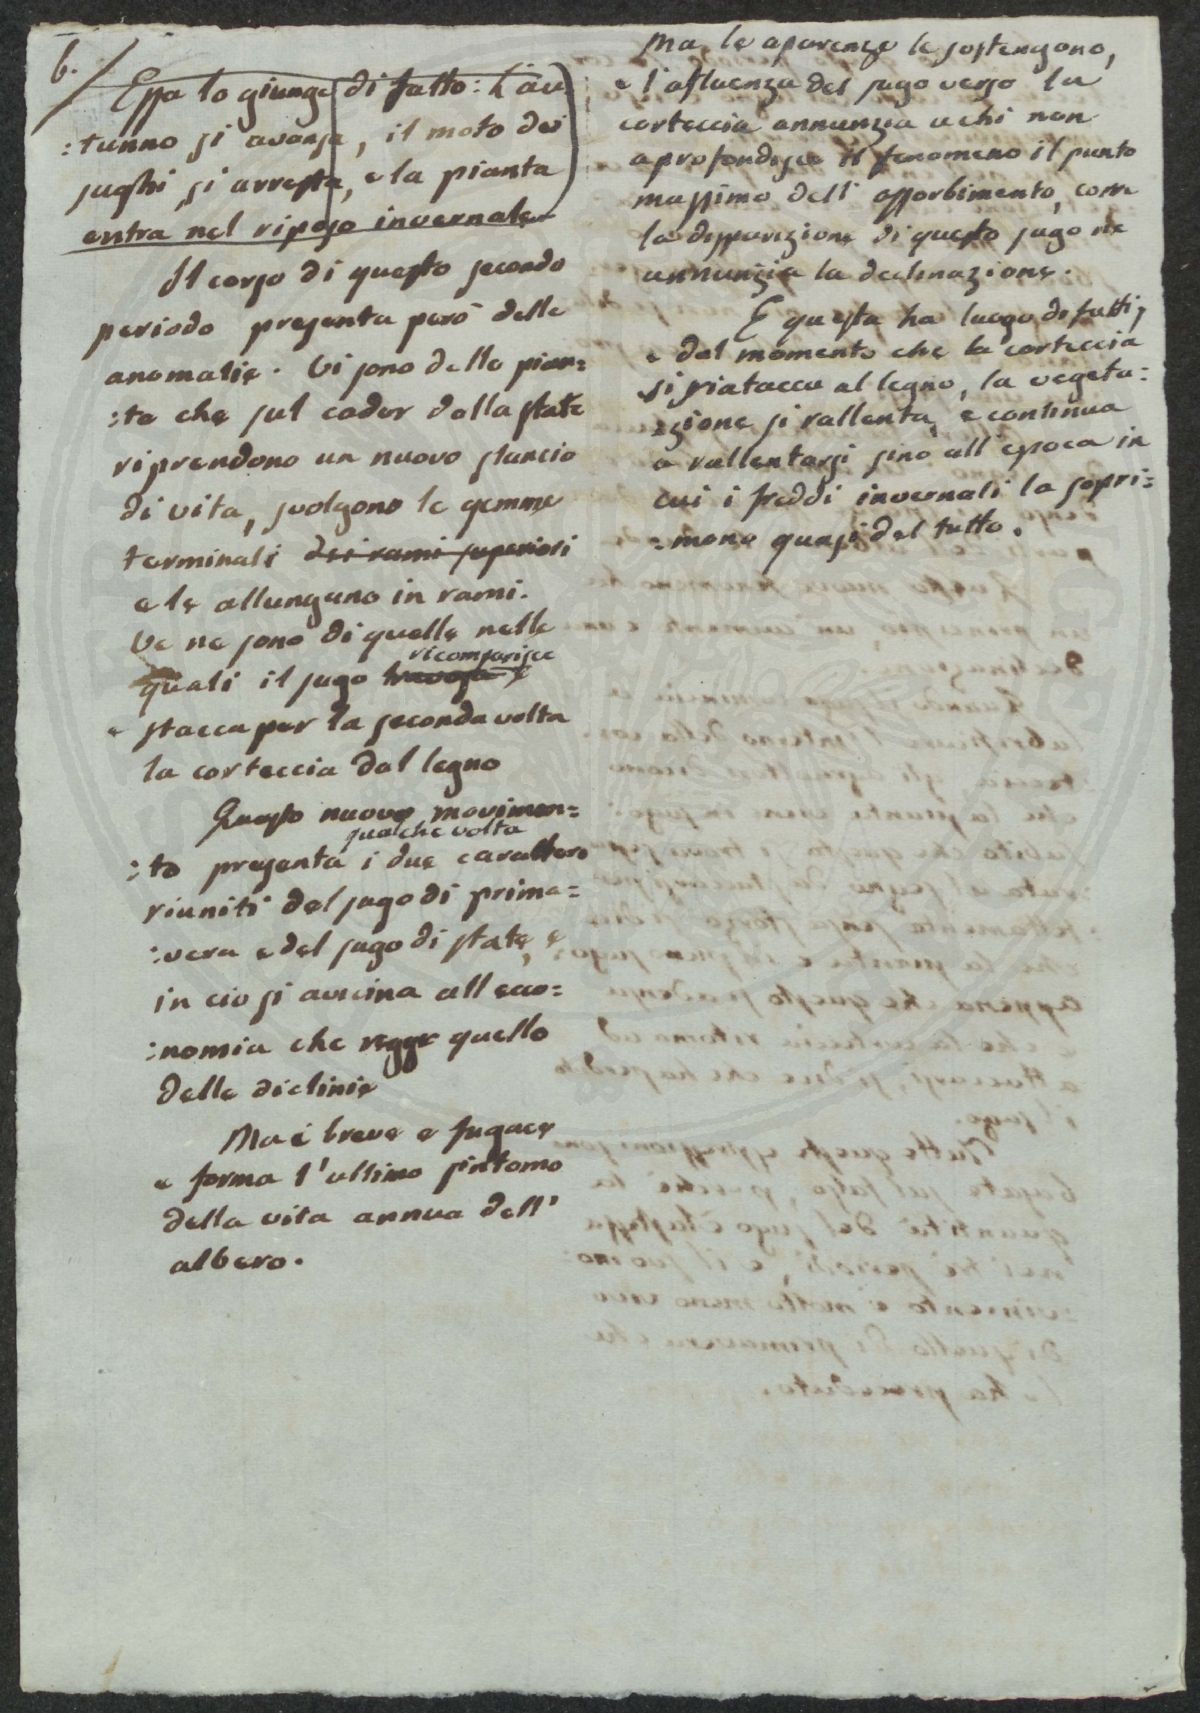 6.
Essa lo giunge di fatto: L'au
:tunno si avansa, il moto dei
sughi, si arresta, e la pianta
entra nel riposo invernale
Il corso di questo secondo
periodo presenta però delle
anomalie. Vi sono delle pian:
:te che sul cader della state
riprendono un nuovo slancio
di vita, svolgono le gemme
terminali dei rami superiori
e le allungano in rami.
Ve ne sono di quelle nelle
ricomparisce
quali il sugo
e stacca per la seconda volta
la corteccia dal legno
Questo nuovo movimen:
qualche volta
:to presenta i due caratteri
riuniti del sugo di prima:
:vera e del sugo di state, e
in cio si avicina all eco:
:nomia che regge quello
delle diclinie
Ma è breve e fugace
e forma l'ultimo sintomo
della vita annua dell'
albero.
Ma le aparenze le sostengono,
e l'afluenza del sugo verso la
corteccia annunzia a chi non
aprofondisce il fenomeno il punto
massimo dell' assorbimento, come
la disparizione di questo sugo ne
annunzia la declinazione.
E questa ha luogo di fatti,
e dal momento che la corteccia
si riatacca al legno, la vegeta:
:zione si rallenta, e continua
a rallentarsi sino all'epoca in
cui i freddi invernali la sopri:
:mono quasi del tutto.